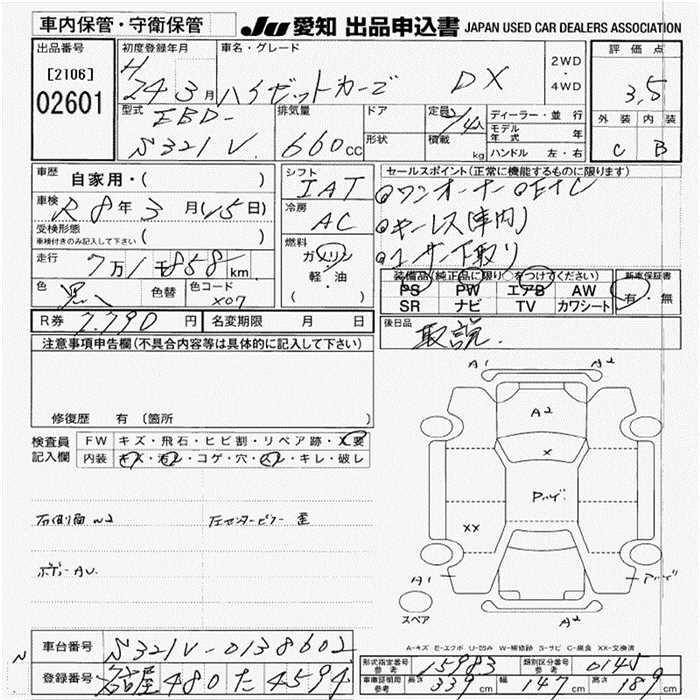 車内保管・守衛保管
JU 愛知 出品申込書 JAPAN USED CAR DEALERS ASSOCIATION
出品番号
[2106]
02601
初度登録年月
H 24年 3月
車名・グレード
ハイゼットカーゴ DX
2WD
・
4WD
評価点
3,5
外装 内装
C B
型式
EBD-
S321V
排気量
660cc
ドア
形状
定員
積載
kg
ディーラー・並行
モデル年式 年
ハンドル 左・右
車歴
自家用・( )
車検
R 8年 3月(15日)
受検形態
車検付きのみ記入して下さい
( )
走行
7万1千858km
色
黒
色替
色コード
X07
シフト
IAT
冷房
AC
燃料
ガソリン
軽・油
( )
セールスポイント(正常に機能するものに限ります)
◎ワンオーナー ◎ETC
◎キーレス(車内)
◎ユーザー下取り
装備品(純正品に限り○をつけてください)
PS PW エアB AW
SR ナビ TV カワシート
新車保証書
有・無
R券 7.790円
名変期限 月 日
後日品
取説.
注意事項申告欄(不具合内容等は具体的に記入して下さい)
修復歴 有 (箇所 )
検査員
記入欄
FW キズ・飛石・ヒビ割・リペア跡・X要
内装 キズ・汚レ・コゲ・穴・スレ・キレ・破レ
右側面W2 左センターピラー歪
ボデーAU.
A2 A2
A2
X
Pハゲ
XX
A1 Pハゲ
A2
スペア
A-キズ E-エクボ U-凹み W-補修跡 S-サビ C-腐食 XX-交換済
車台番号
S321V-0138602
登録番号
名古屋 480 た 4594
形式指定番号
参考
15983
類別区分番号
参考
0145
車庫証明用
参考
長さ 339cm
幅 147cm
高さ 189cm